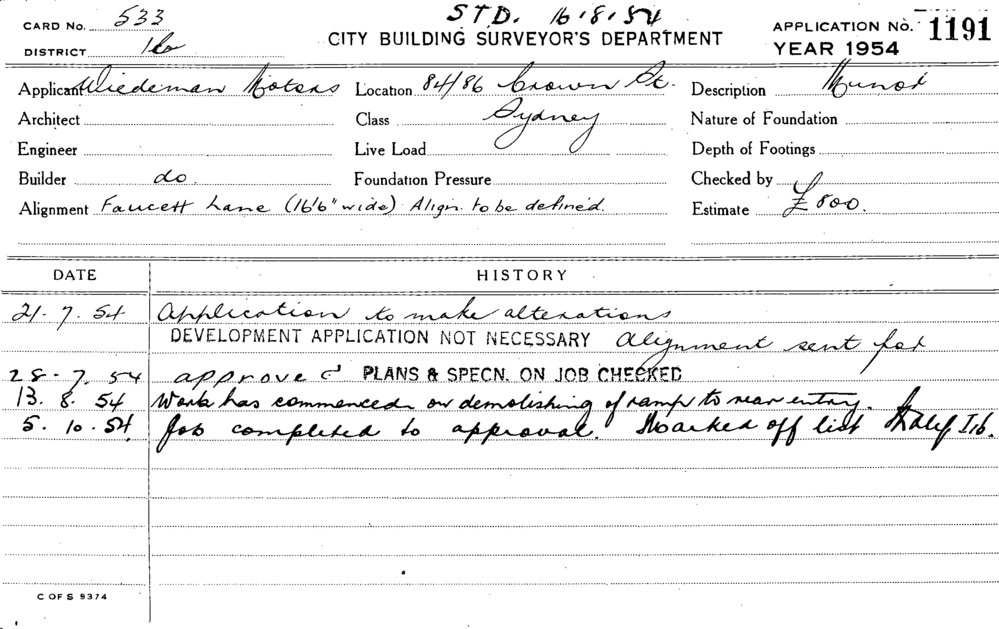 STD. 16.8.54
CARD No. 533
CITY BUILDING SURVEYOR'S DEPARTMENT
APPLICATION No. 1191
DISTRICT
YEAR 1954
Applicant Wiedeman Motors Location 84/86 Crown St. Description Minor
Architect Class Sydney Nature of Foundation
Engineer Live Load Depth of Footings
Builder do. Foundation Pressure Checked by
Alignment Faucett Lane (16'6" wide) Align. to be defined. Estimate £800.
DATE HISTORY
21.7.54 Application to make alterations
DEVELOPMENT APPLICATION NOT NECESSARY Alignment sent for
28-7.54 approved PLANS & SPECN. ON JOB CHECKED
13.8.54 Work has commenced on demolishing of ramp to rear entry.
5.10.54 Job completed to approval. Marked off list
C OF S 9374